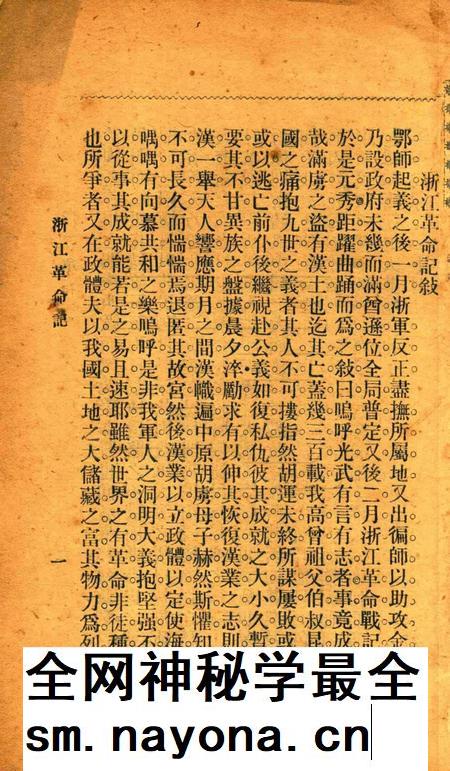 浙江革命記敍
鄂師起義之後一月浙軍反正盡撫所屬地又出徧師以助攻金
乃設政府未幾而滿酋遜位全局普定又後二月浙江革命戰記
於是元秀距躍曲踊而爲之敍曰嗚呼光武有言有志者事竟成
哉滿虜之盜有漢土也迄其亡蓋幾三百載我高曾祖父伯叔昆
國之痛抱九世之義者其人不可摟指然胡運未終所謀屢敗或
或以逃亡前仆後繼視赴公義如復私仇彼其成就之大小久暫
要其不甘異族之盤據晨夕淬勵求有以伸其恢復漢業之志則
漢一舉天人響應期月之間漢幟遍中原胡虜母子赫然斯懼知
不可長久而惴惴焉退匿其故宮然後漢業以立政體以定使海
喁喁有向慕共和之樂嗚呼是非我軍人之洞明大義抱堅强不
以從事其成就能若是之易且速耶雖然世界之有革命非徒種
也所爭者又在政體夫以我國土地之大儲藏之富其物力爲列
浙江革命記
一
全网神秘学最全
sm.nayona.cn